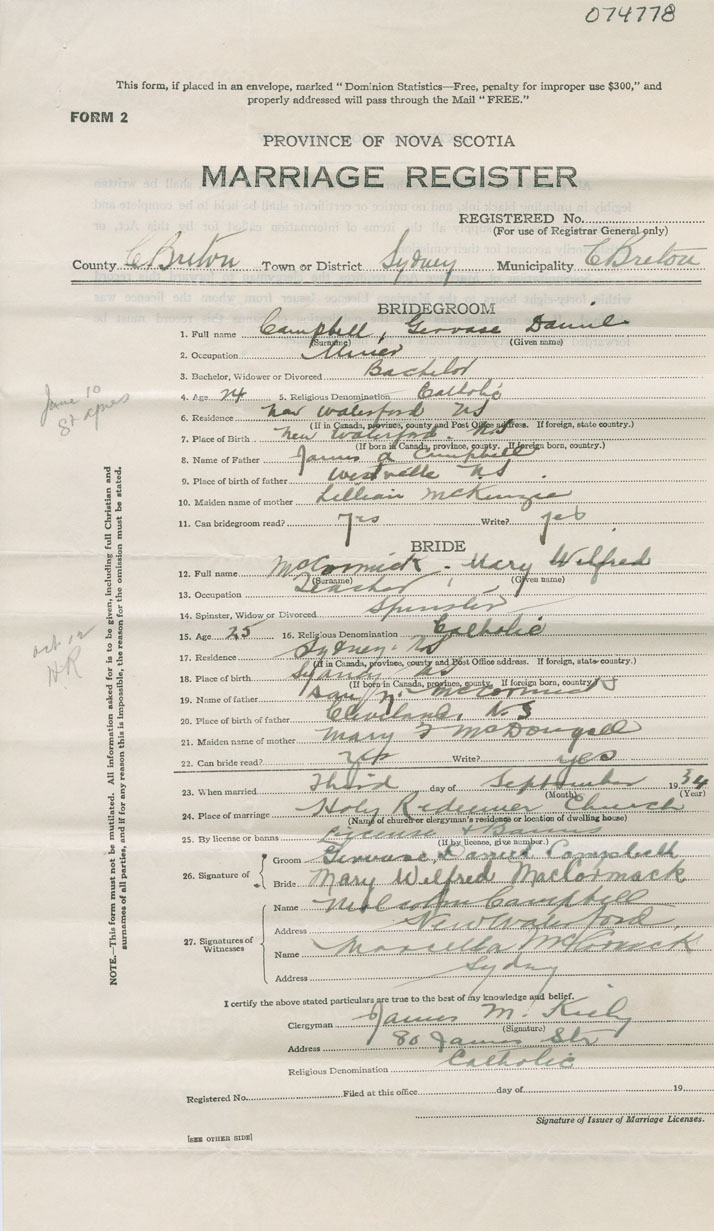 074778
This form, if placed in an envelope, marked “Dominion Statistics—Free, penalty for improper use $300,” and
properly addressed will pass through the Mail “FREE.”
FORM 2
PROVINCE OF NOVA SCOTIA
MARRIAGE REGISTER
REGISTERED No.
(For use of Registrar General only)
County C Breton Town or District Sydney Municipality C Breton
BRIDEGROOM
1. Full name Campbell, Gervase Daniel
(Surname) (Given name)
2. Occupation Miner
3. Bachelor, Widower or Divorced Bachelor
4. Age 24 5. Religious Denomination Catholic
6. Residence New Waterford NS
(If in Canada, province, county and Post Office address. If foreign, state country.)
7. Place of Birth New Waterford. NS
(If born in Canada, province, county. If foreign born, country.)
8. Name of Father James A Campbell
9. Place of birth of father Westville NS
10. Maiden name of mother Lillian McKenzie
11. Can bridegroom read? Yes Write? yes
BRIDE
12. Full name McCormick - Mary Wilfred
(Surname) (Given name)
13. Occupation Teacher
14. Spinster, Widow or Divorced Spinster
15. Age 25 16. Religious Denomination Catholic
17. Residence Sydney. NS
(If in Canada, province, county and Post Office address. If foreign, state country.)
18. Place of birth Sydney NS
(If born in Canada, province, county. If foreign born, country.)
19. Name of father Dan McCormick
20. Place of birth of father Cleveland, NS
21. Maiden name of mother Mary McDougall
22. Can bride read? Yes Write? yes
23. When married Third day of September 1934
(Month) (Year)
24. Place of marriage Holy Redeemer Church
(Name of church or clergyman's residence or location of dwelling house)
25. By license or banns License & Banns
(If by license, give number.)
26. Signature of
Groom Gervase Daniel Campbell
Bride Mary Wilfred MacCormack
27. Signatures of Witnesses
Name Malcolm Campbell
Address New Waterford
Name Marcella McCormack
Address Sydney
I certify the above stated particulars are true to the best of my knowledge and belief.
Clergyman James M. Kiely
(Signature)
Address 80 James Str
Religious Denomination Catholic
Registered No. Filed at this office day of 19
Signature of Issuer of Marriage Licenses.
[SEE OTHER SIDE]
NOTE.—This form must not be mutilated. All information asked for is to be given, including full Christian and
surnames of all parties, and if for any reason this is impossible, the reason for the omission must be stated.
June 10
St Agnes
Oct 12
HR